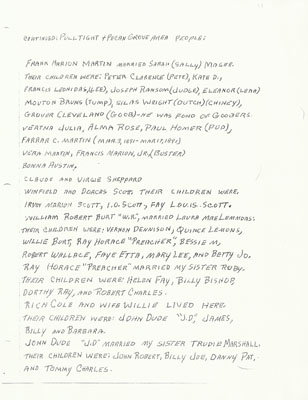 CONTINUED: PULLTIGHT & PECAN GROVE AREA PEOPLE:
FRANK MARION MARTIN MARRIED SARAH (SALLY) MAGEE.
THEIR CHILDREN WERE: PETER CLARENCE (PETE), KATE D.,
FRANCIS LEONIDAS (LEE), JOSEPH RANSOM (JUDGE), ELEANOR (LENA)
MOUTON BRUNS (TUMP), SILAS WEIGHT (DUTCH) (CHINEY),
GROVER CLEVELAND (GOOB)-HE WAS FOND OF GOOBERS
VERTNA JULIA, ALMA ROSE, PAUL HOMER (PUD),
FARRAR C. MARTIN (MAR. 3, 1891-MAR. 17, 1891)
VERA MARTIN, FRANCIS MARION, JR. (BUSTER)
DONNA AUSTIN,
CLAUDE AND VIRGIE SHEPPARD
WINFIELD AND DORCAS SCOTT. THEIR CHILDREN WERE.
IRVIN MARION SCOTT, I.D. SCOTT, FAY LOUIS SCOTT.
WILLIAM ROBERT BURT "W.R.", MARRIED LAURA MAE LEMONDS.
THEIR CHILDREN WERE: VERNON DENNISON, QUINCE LEMONS,
WILLIE BURT, RAY HORACE "PREACHER", BESSIE M,
ROBERT WALLACE, FAYE ETTA, MARY LEE, AND BETTY JO.
RAY HORACE "PREACHER" MARRIED MY SISTER RUBY.
THEIR CHILDREN WERE: HELEN FAY, BILLY BISHOP,
DORTHY RAY, AND ROBERT CHARLES.
RICH COLE AND WIFE WILLIE LIVED HERE.
THEIR CHILDREN WERE: JOHN DUDE "J.D.", JAMES,
BILLY AND BARBARA.
JOHN DUDE "J.D" MARRIED MY SISTER TRUDIE MARSHALL.
THEIR CHILDREN WERE: JOHN ROBERT, BILLY JOE, DANNY PAT,
AND TOMMY CHARLES.